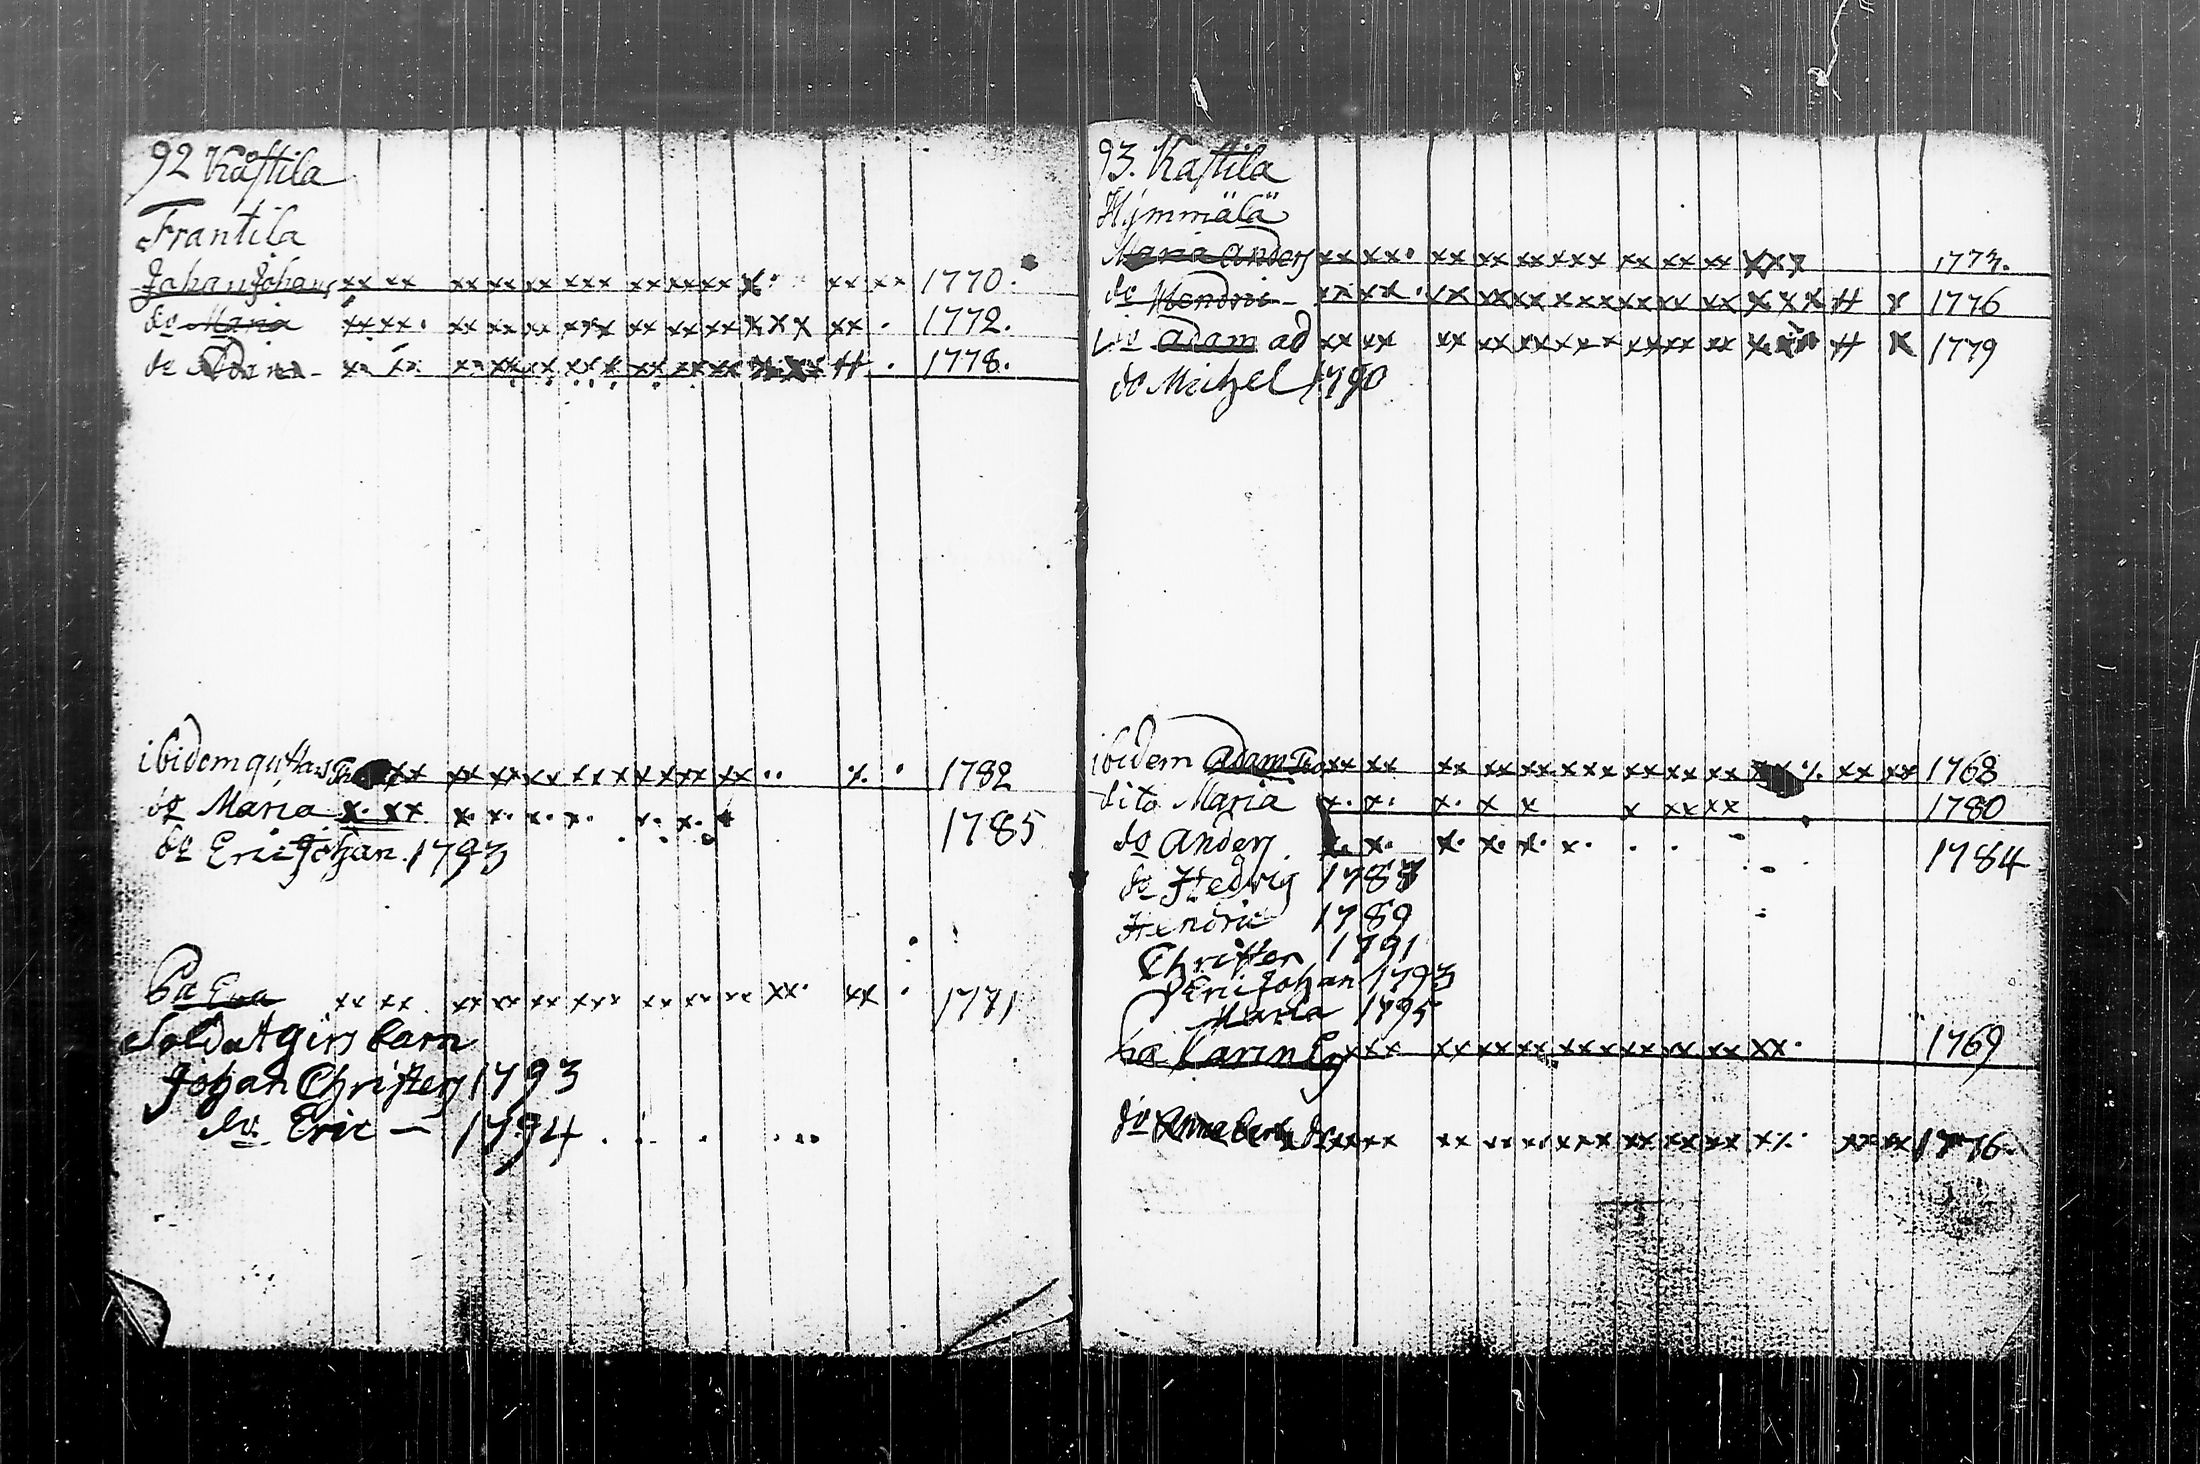 92 Kåstila
Frantila
Johan Johans xx xx xx xx xx xxx xx xx xx x· xx xx 1770.
do Maria xx xx · xx xx xx xxx xx xx xx x x x xx · 1772.
do xx xx xx xxx xx xx xx · 1778.
ibidem gustaf xx xx xx xx xx x x x xx xx ·· ⁒ · 1782
do Maria x· xx x· x· x· x· x· x· 1785
do Eric Johan 1793
Eva xx xx xx xx xx xxx xx xx xx xx· xx · 1771
Soldat girs barn
Johan Christers 1793
do. Eric — 1794
93. Kastila
Hymmälä
Maria Anders xx xx · xx xx xx xxx xx xx xx xxx 1773.
do Hendric xx xx · xx xx xx xxx xx xx xx x x x H x 1776
do Adam ad xx xx xx xx xx xxx xx xx xx H 1779
do Michel 1790
ibidem Adam xx xx xx xx xx xxx xx xx xx ⁒ xx xx 1768
dito Maria x· x· x· x x x xx xx 1780
do Anders x· x· x· x· x· x· · · 1784
do Hedvig 1787
Hendric 1789
Christer 1791
Eric Johan 1793
Maria 1795
Carin xxx xx xx xx xxx xx xx xx xx· 1769
do Anna xx xx xx xxx xx xx xx x⁒· xx xx 1776.